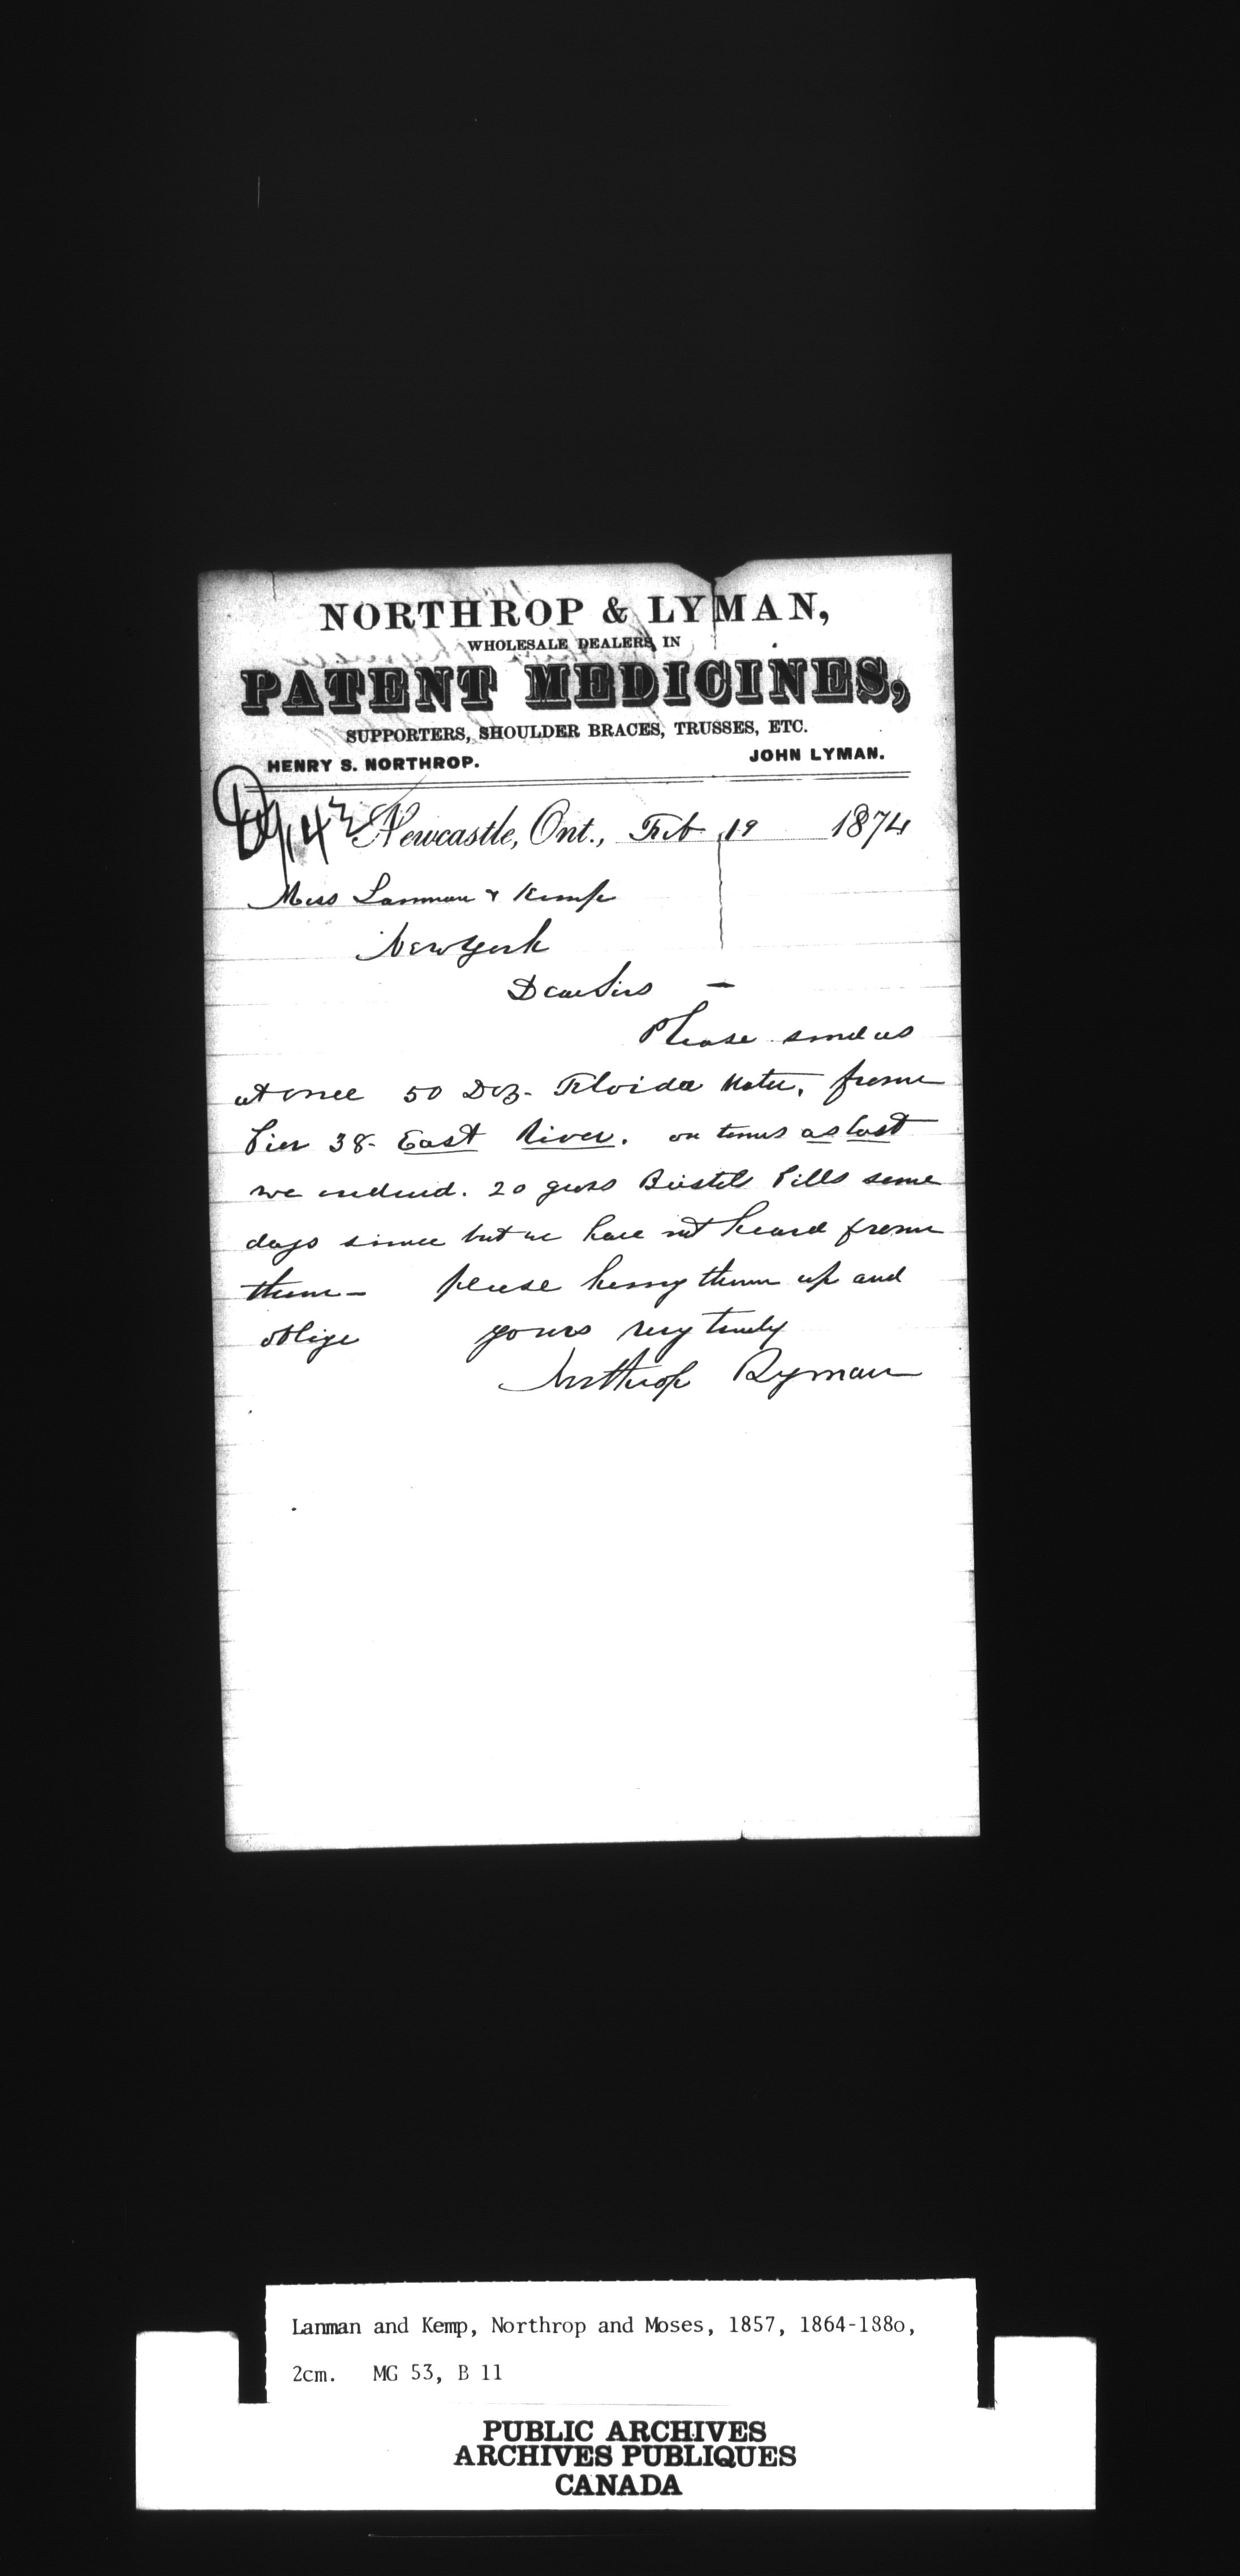 NORTHROP & LYMAN,
WHOLESALE DEALERS IN
PATENT MEDICINES,
SUPPORTERS, SHOULDER BRACES, TRUSSES, ETC.
HENRY S. NORTHROP. JOHN LYMAN.
Newcastle, Ont., Feb 19 1874
Mess Lanman & Kemp
New York
Dear Sirs —
Please send us
at once 50 Doz. Florida Water, from
Pier 38 East River. on terms as last
we ordered. 20 gross Bristols Pills some
days since but we have not heard from
them — please hurry them up and
oblige yours very truly
Northrop Lyman
Lanman and Kemp, Northrop and Moses, 1857, 1864-188o,
2cm. MG 53, B 11
PUBLIC ARCHIVES
ARCHIVES PUBLIQUES
CANADA